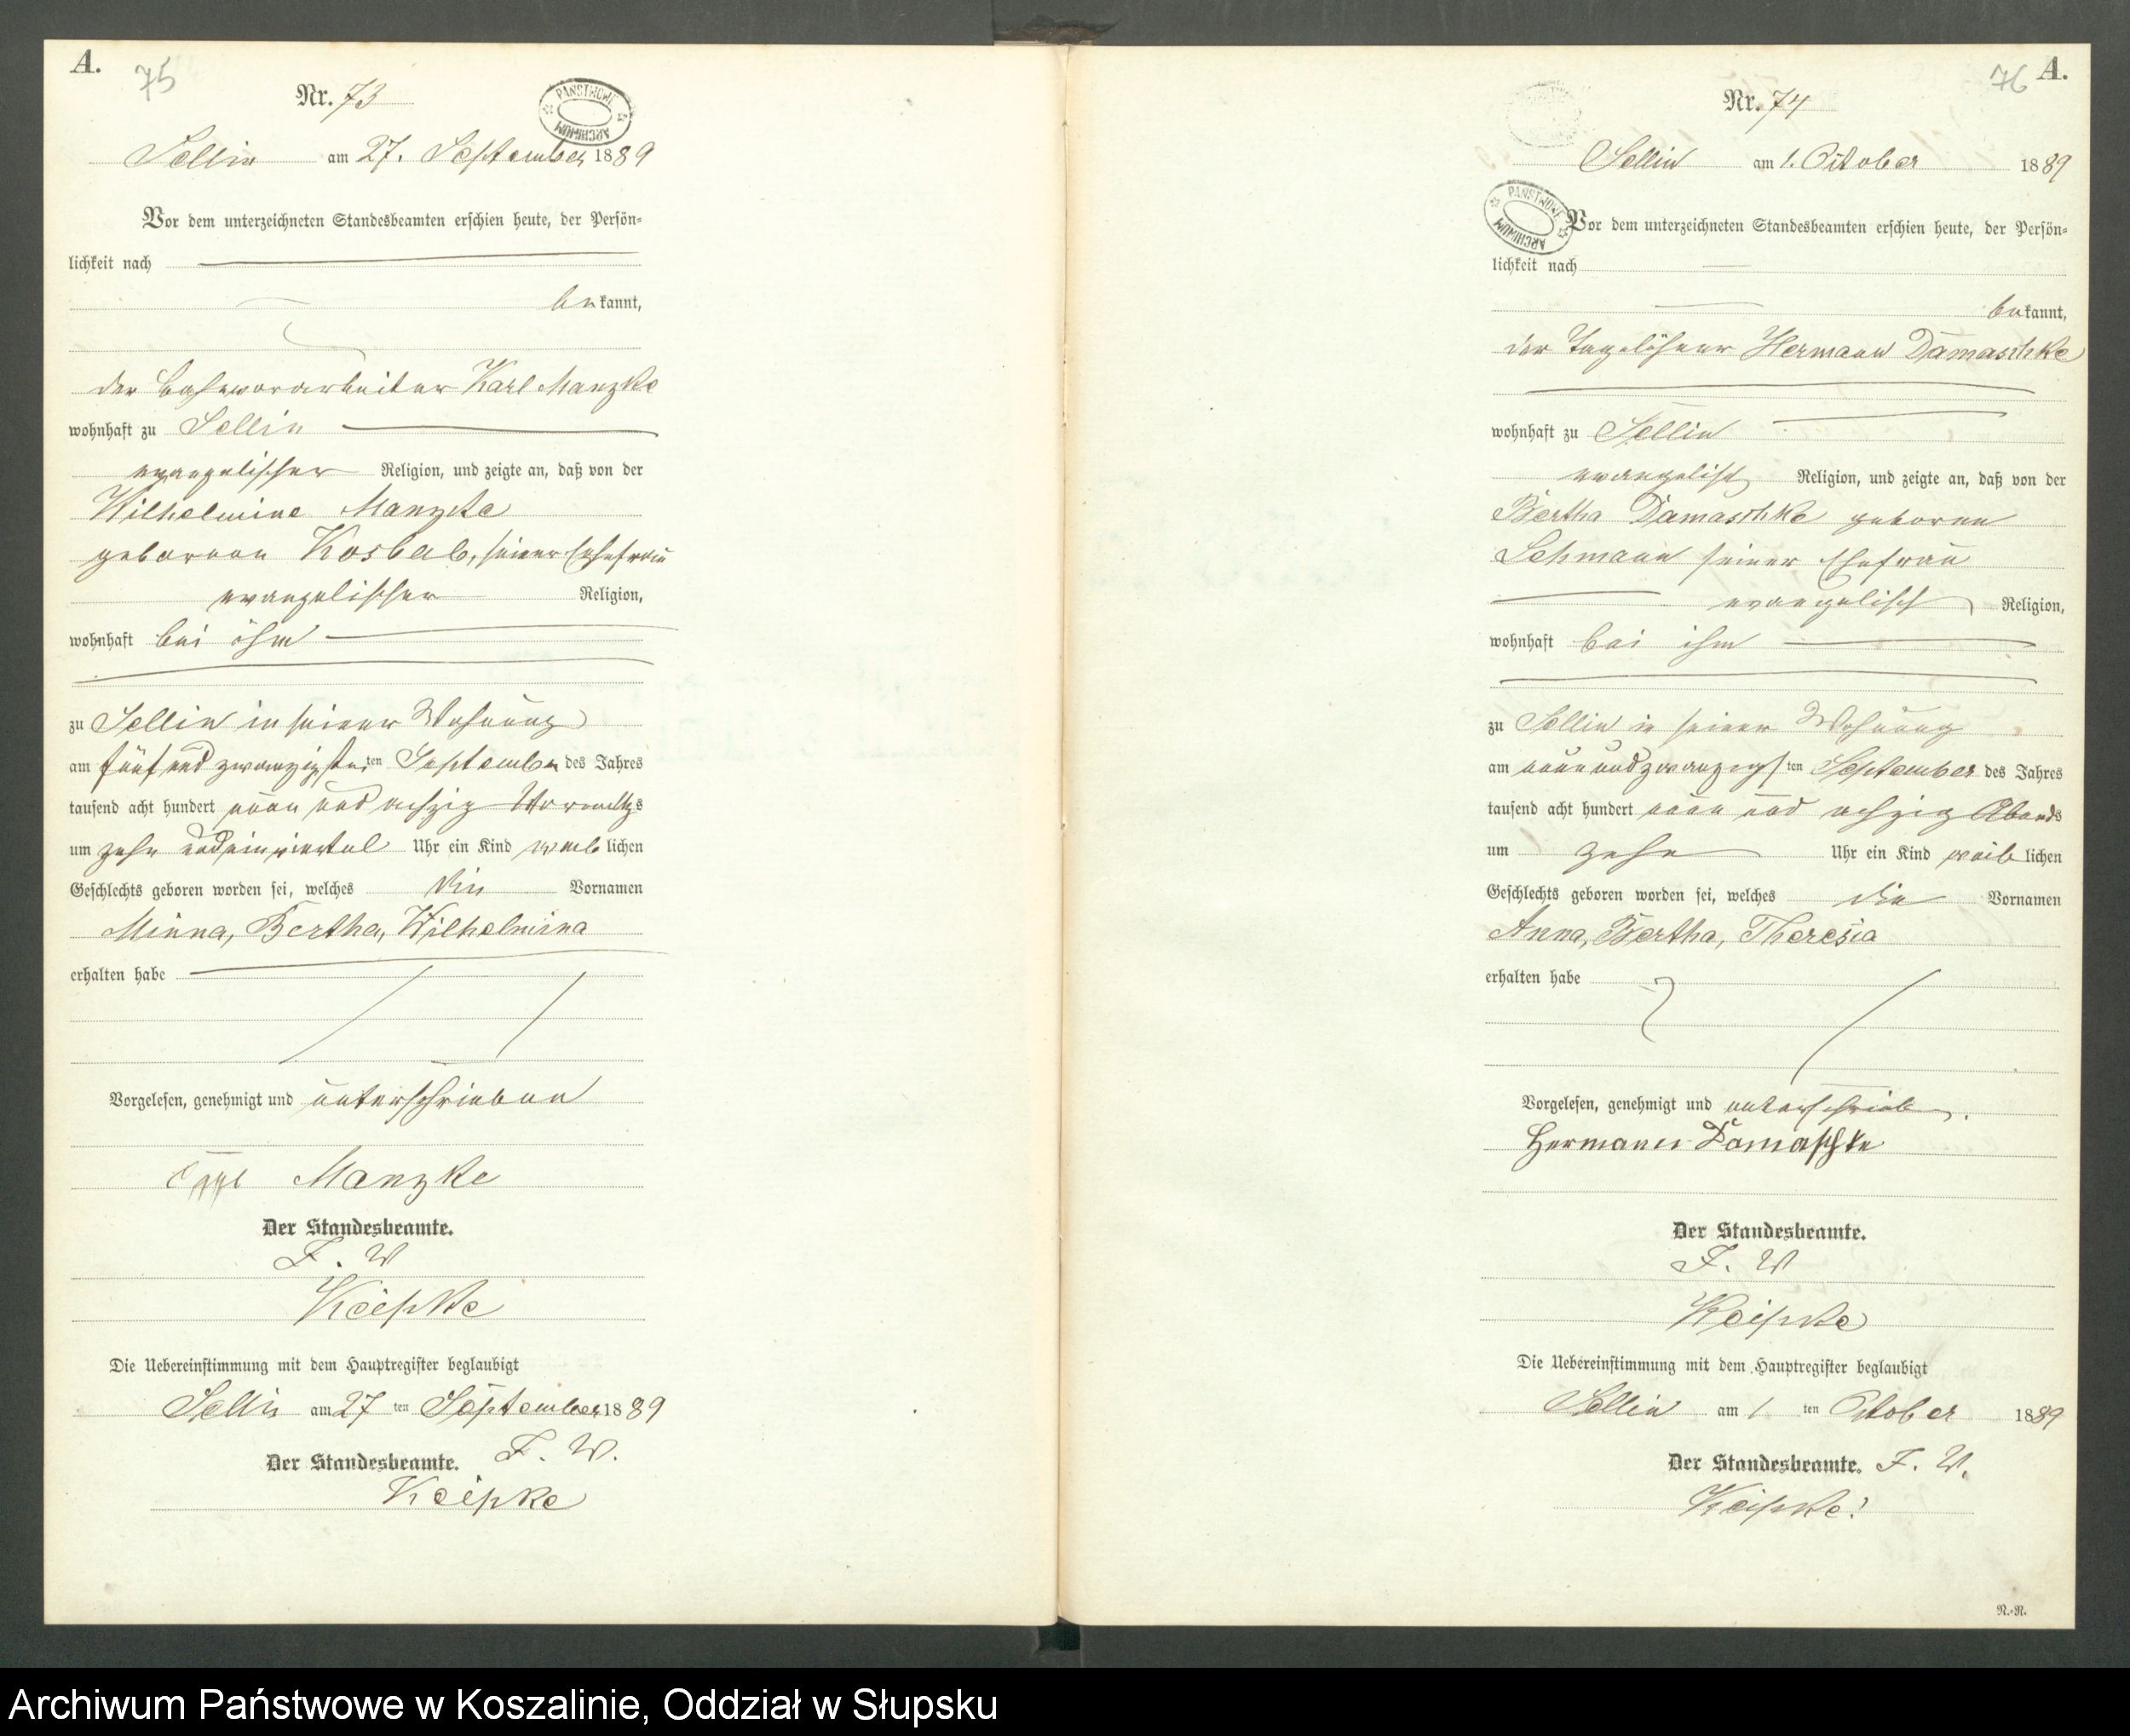 A.
75
Nr. 73
PAŃSTWOWE ARCHIWUM
Sellin am 27. September 1889
Vor dem unterzeichneten Standesbeamten erschien heute, der Persön=
lichkeit nach
bekannt,
der Bahnvorarbeiter Karl Manzke
wohnhaft zu Sellin
evangelischer Religion, und zeigte an, daß von der
Wilhelmine Manzke
geborenen Kosbab, seiner Ehefrau
evangelischer Religion,
wohnhaft bei ihm
zu Sellin in seiner Wohnung
am fünf und zwanzigsten ten September des Jahres
tausend acht hundert neun und achzig Vormittags
um zehn und ein viertel Uhr ein Kind weiblichen
Geschlechts geboren worden sei, welches die Vornamen
Minna, Bertha, Wilhelmina
erhalten habe
Vorgelesen, genehmigt und unterschrieben
Manzke
Der Standesbeamte.
F. W
Keipke
Die Uebereinstimmung mit dem Hauptregister beglaubigt
Sellin am 27 ten September 1889
Der Standesbeamte. F. W.
Keipke
76
A.
Nr. 74
Sellin am 1. October 1889
PAŃSTWOWE ARCHIWUM
Vor dem unterzeichneten Standesbeamten erschien heute, der Persön=
lichkeit nach
bekannt,
der Tagelöhner Hermann Damaschke
wohnhaft zu Sellin
evangelisch Religion, und zeigte an, daß von der
Bertha Damaschke geborene
Lehmann seiner Ehefrau
evangelisch Religion,
wohnhaft bei ihm
zu Sellin in seiner Wohnung
am neun und zwanzigsten September des Jahres
tausend acht hundert neun und achzig Abends
um zehn Uhr ein Kind weiblichen
Geschlechts geboren worden sei, welches die Vornamen
Anna, Bertha, Theresia
erhalten habe
Vorgelesen, genehmigt und unterschrieben.
Hermann Damaschke
Der Standesbeamte.
F. W
Keipke
Die Uebereinstimmung mit dem Hauptregister beglaubigt
Sellin am 1 ten October 1889
Der Standesbeamte. F. W.
Keipke.
N.=N.
Archiwum Państwowe w Koszalinie, Oddział w Słupsku